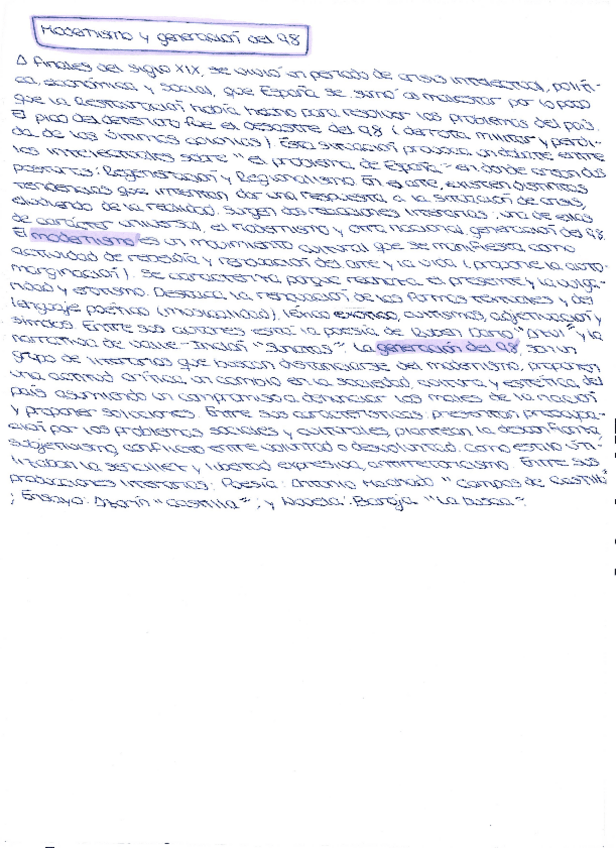 Modernismo y generación del 98
A finales del siglo XIX, se vivió un periodo de crisis intelectual, políti-
ca, económica y social, que España se sumó al malestar por lo poco
que la Restauración había hecho para resolver los problemas del país.
El pico del deterioro fue el desastre del 98 (derrota militar y pérdi-
da de las últimas colonias). Esta situación provoca un debate entre
los intelectuales sobre "el problema de España" en donde surgen dos
posturas: Regeneración y Regionalismo. En el arte, existen distintas
tendencias que intentan dar una respuesta a la situación de crisis,
eludiendo de la realidad. Surgen dos reacciones literarias: una de ellas
de carácter universal, el modernismo y otra nacional, generación del 98.
El modernismo es un movimiento cultural que se manifiesta como
actividad de rebeldía y renovación del arte y la vida (propone la auto-
marginación). Se caracteriza porque rechaza el presente y la vulga-
ridad y erotismo. Destaca la renovación de las formas textuales y del
lenguaje poético (musicalidad), léxico exótico, cultismos, adjetivación y
símbolos. Entre sus autores está la poesía de Rubén Darío, "Azul" y la
narrativa de Valle-Inclán "Sonatas". La generación del 98, son un
grupo de literarios que buscan distanciarse del modernismo, proponen
una actitud crítica, un cambio en la sociedad, cultura y estética del
país asumiendo un compromiso a denunciar los males de la nación
y proponer soluciones. Entre sus características: presentan preocupa-
ción por los problemas sociales y culturales, plantean la desconfianza,
subjetivismo, conflicto entre voluntad o desvoluntad. Como estilo uti-
lizaban la sencillez y libertad expresiva, antirretoricismo. Entre sus
producciones literarias: Poesía: Antonio Machado "Campos de Castilla"
; Ensayo: Azorín "Castilla"; y Novela: Baroja "La busca".